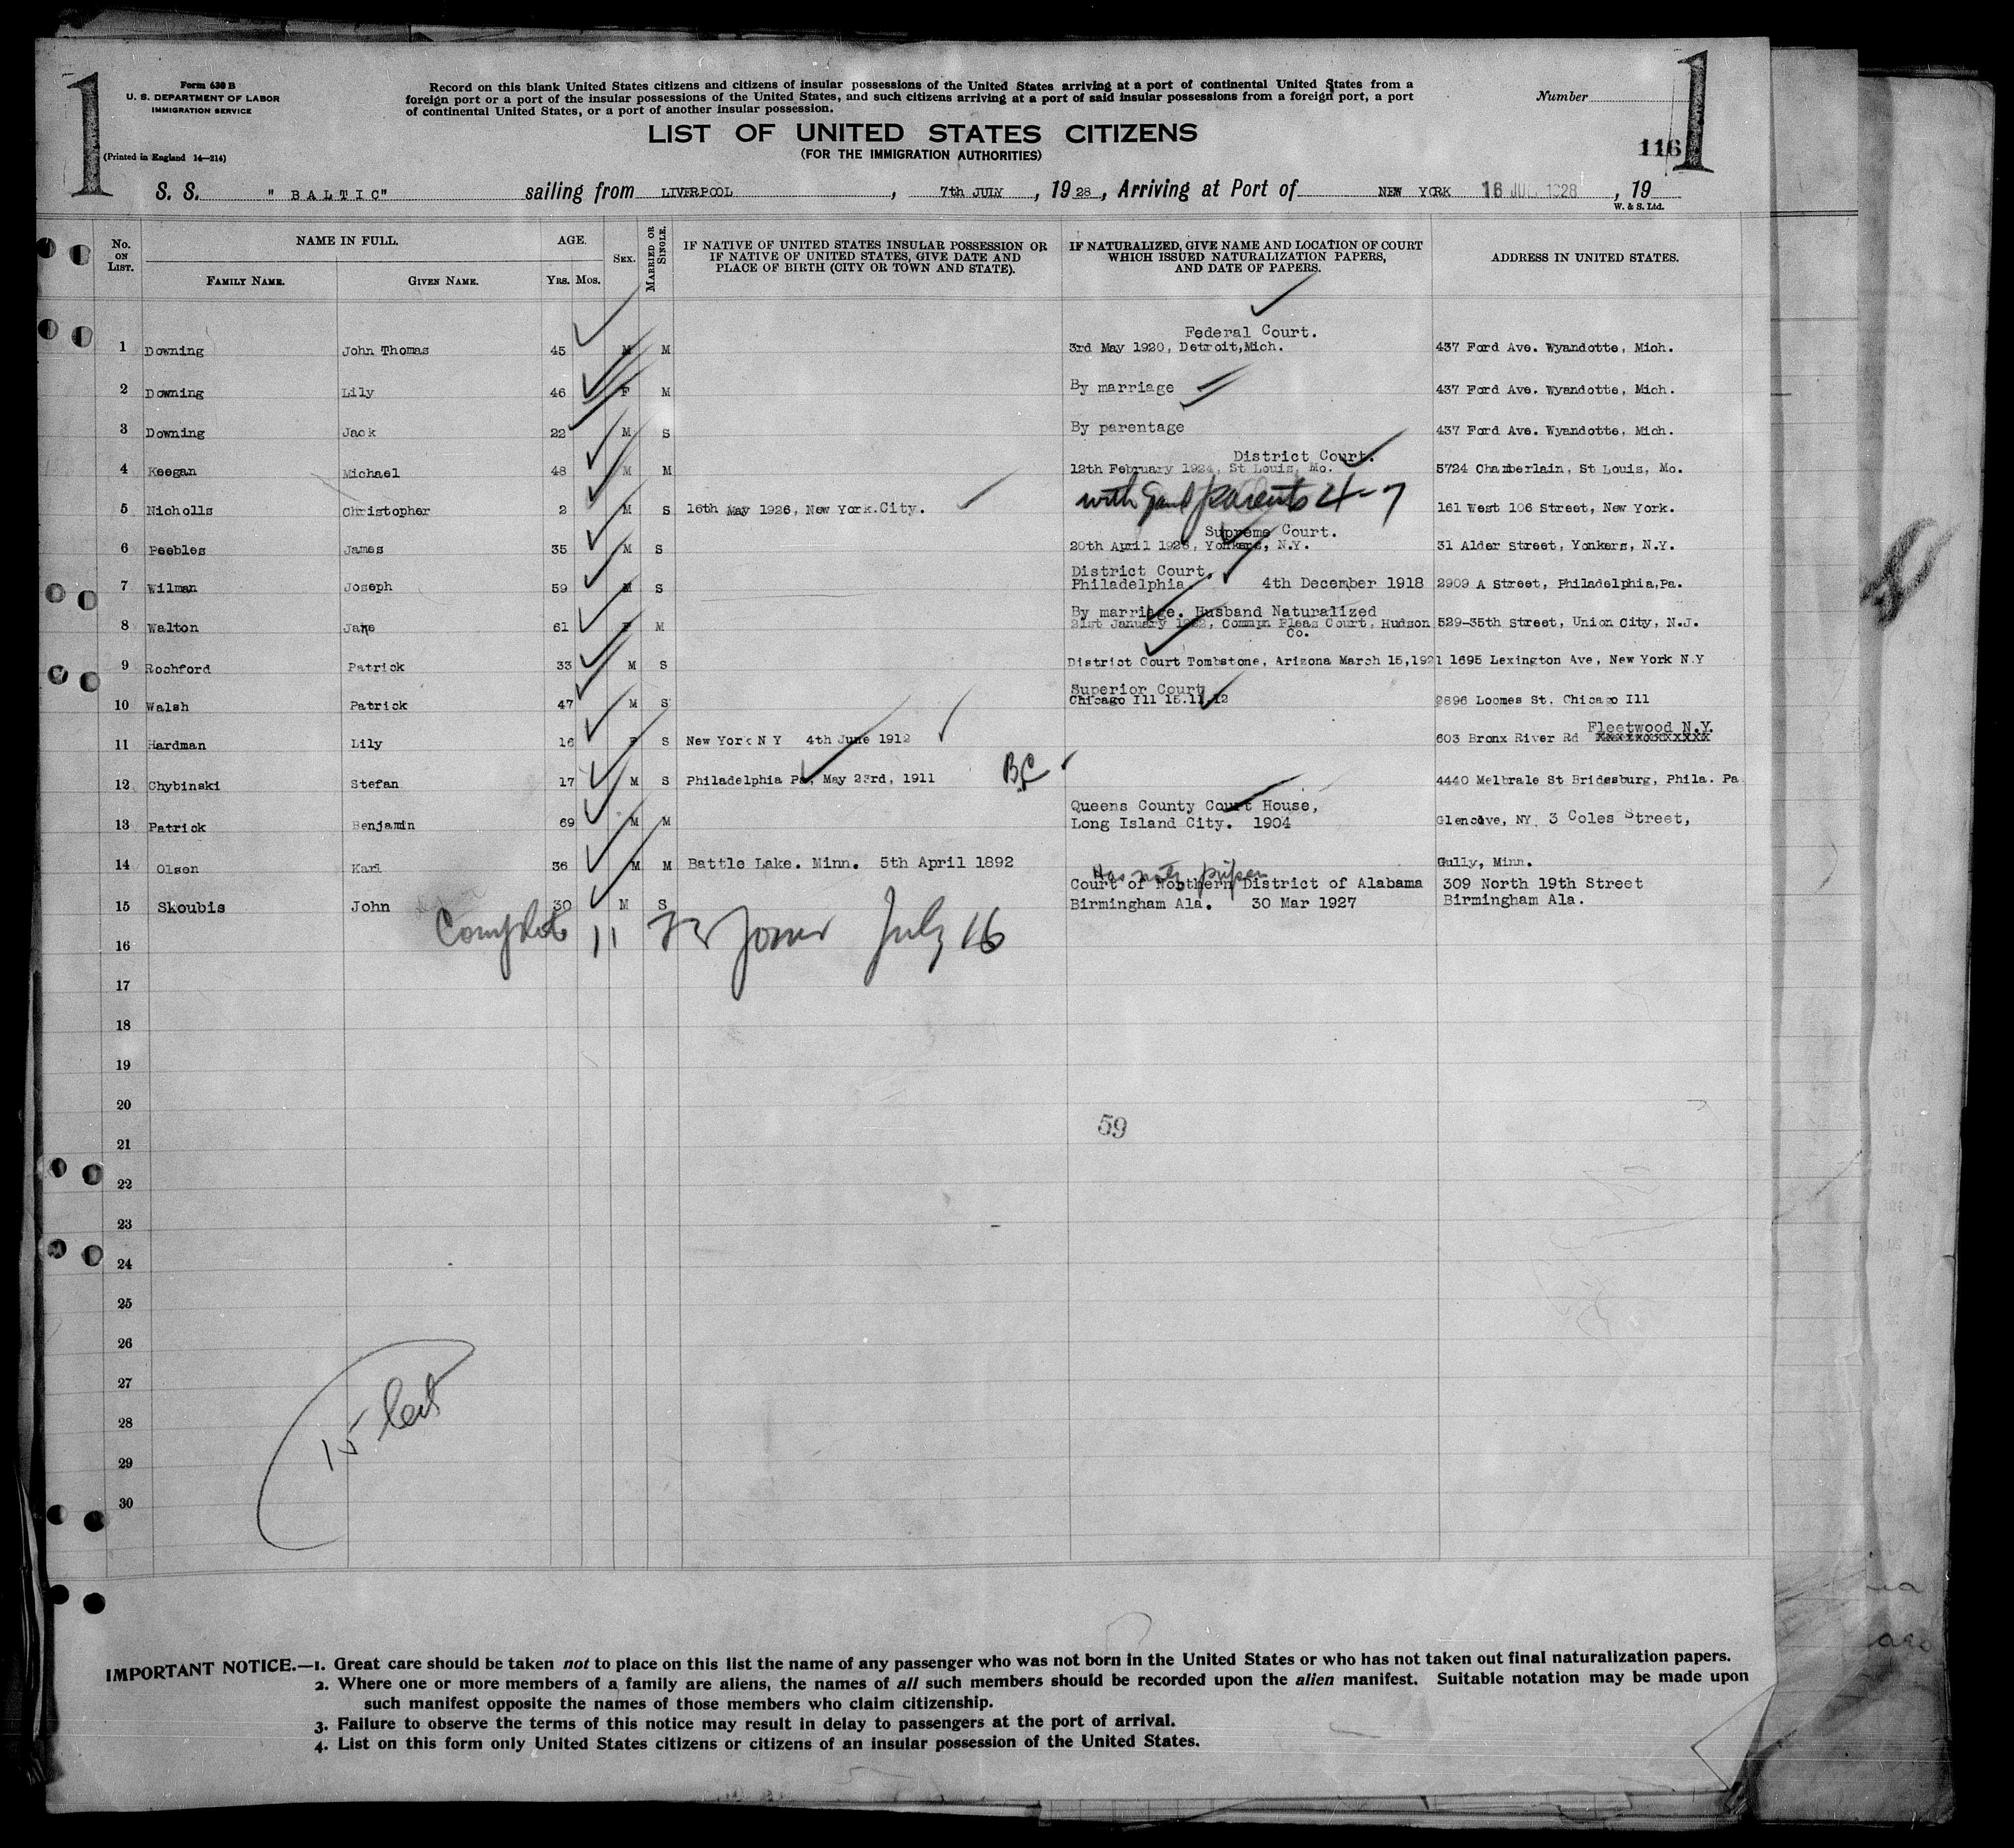 1
Form 630 B
U. S. DEPARTMENT OF LABOR
IMMIGRATION SERVICE
(Printed in England 14—214)
Record on this blank United States citizens and citizens of insular possessions of the United States arriving at a port of continental United States from a
foreign port or a port of the insular possessions of the United States, and such citizens arriving at a port of said insular possessions from a foreign port, a port
of continental United States, or a port of another insular possession.
Number
1
LIST OF UNITED STATES CITIZENS
(FOR THE IMMIGRATION AUTHORITIES)
116
S. S. "BALTIC" sailing from LIVERPOOL, 7th JULY, 1928, Arriving at Port of NEW YORK 16 JUL 1928, 19
W. & S. Ltd.
No. ON LIST.
NAME IN FULL.
FAMILY NAME. GIVEN NAME.
AGE.
YRS. MOS.
SEX.
MARRIED OR SINGLE.
IF NATIVE OF UNITED STATES INSULAR POSSESSION OR
IF NATIVE OF UNITED STATES, GIVE DATE AND
PLACE OF BIRTH (CITY OR TOWN AND STATE).
IF NATURALIZED, GIVE NAME AND LOCATION OF COURT
WHICH ISSUED NATURALIZATION PAPERS,
AND DATE OF PAPERS.
ADDRESS IN UNITED STATES.
Federal Court.
1 Downing John Thomas 45 M M 3rd May 1920, Detroit,Mich. 437 Ford Ave. Wyandotte, Mich.
2 Downing Lily 46 F M By marriage 437 Ford Ave. Wyandotte, Mich.
3 Downing Jack 22 M S By parentage 437 Ford Ave. Wyandotte, Mich.
District Court.
4 Keegan Michael 48 M M 12th February 1924, St Louis, Mo. 5724 Chamberlain, St Louis, Mo.
5 Nicholls Christopher 2 M S 16th May 1926, New York.City. with Gand parents 4-7 161 West 106 Street, New York.
Supreme Court.
6 Peebles James 35 M S 20th April 1926, Yonkers, N.Y. 31 Alder Street, Yonkers, N.Y.
District Court.
7 Wilman Joseph 59 M S Philadelphia 4th December 1918 2909 A Street, Philadelphia,Pa.
By marriage. Husband Naturalized
8 Walton Jane 61 F M 21st January, Common Pleas Court, Hudson 529-35th Street, Union City, N.J.
Co.
9 Rochford Patrick 33 M S District Court Tombstone, Arizona March 15,1921 1695 Lexington Ave, New York N.Y
Superior Court
10 Walsh Patrick 47 M S Chicago Ill 15.11.12 2896 Loomes St. Chicago Ill
Fleetwood N.Y.
11 Hardman Lily 16 F S New York N Y 4th June 1912 603 Bronx River Rd
12 Chybinski Stefan 17 M S Philadelphia Pa, May 23rd, 1911 BC 4440 Melbrale St Bridesburg, Phila. Pa
Queens County Court House,
13 Patrick Benjamin 69 M M Long Island City. 1904 Glencove, NY. 3 Coles Street,
14 Olsen Karl 36 M M Battle Lake. Minn. 5th April 1892 Gully, Minn.
Court of Northern District of Alabama 309 North 19th Street
15 Skoubis John 30 M S Birmingham Ala. 30 Mar 1927 Birmingham Ala.
Complete July 16
16
17
18
19
20
59
21
22
23
24
25
26
27
28
15
29
30
IMPORTANT NOTICE.—1. Great care should be taken not to place on this list the name of any passenger who was not born in the United States or who has not taken out final naturalization papers.
2. Where one or more members of a family are aliens, the names of all such members should be recorded upon the alien manifest. Suitable notation may be made upon
such manifest opposite the names of those members who claim citizenship.
3. Failure to observe the terms of this notice may result in delay to passengers at the port of arrival.
4. List on this form only United States citizens or citizens of an insular possession of the United States.